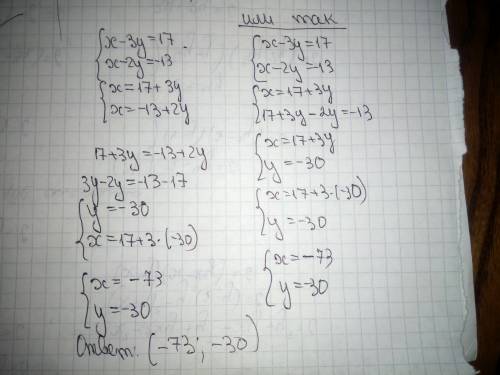 {x-3y=17
{x-2y=-13
{x=17+3y
{x=-13+2y
17+3y=-13+2y
3y-2y=-13-17
{y=-30
{x=17+3·(-30)
{x=-73
{y=-30
Ответ: (-73; -30)
или так
{x-3y=17
{x-2y=-13
{x=17+3y
{17+3y-2y=-13
{x=17+3y
{y=-30
{x=17+3·(-30)
{y=-30
{x=-73
{y=-30